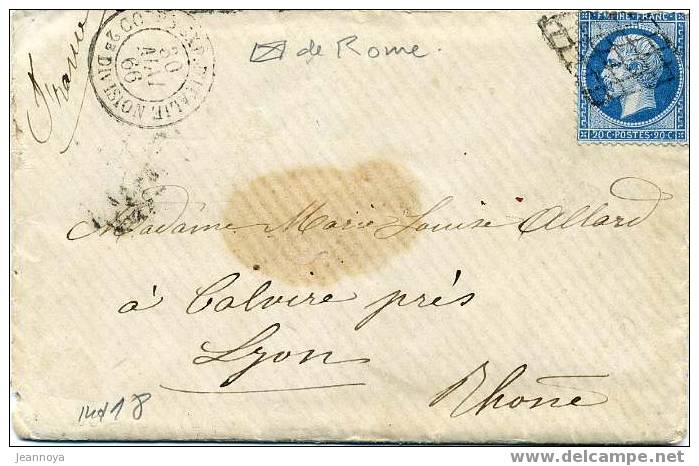 France
CORPS EXP. D'ITALIE 2E DIVISION
30
MAI
66
de Rome.
EMPIRE FRANC
20 C - POSTES - 20 C
Madame Marie Louise Allard
à Calvire près
Lyon
Rhône
ind 18
jeannoya
www.delcampe.net